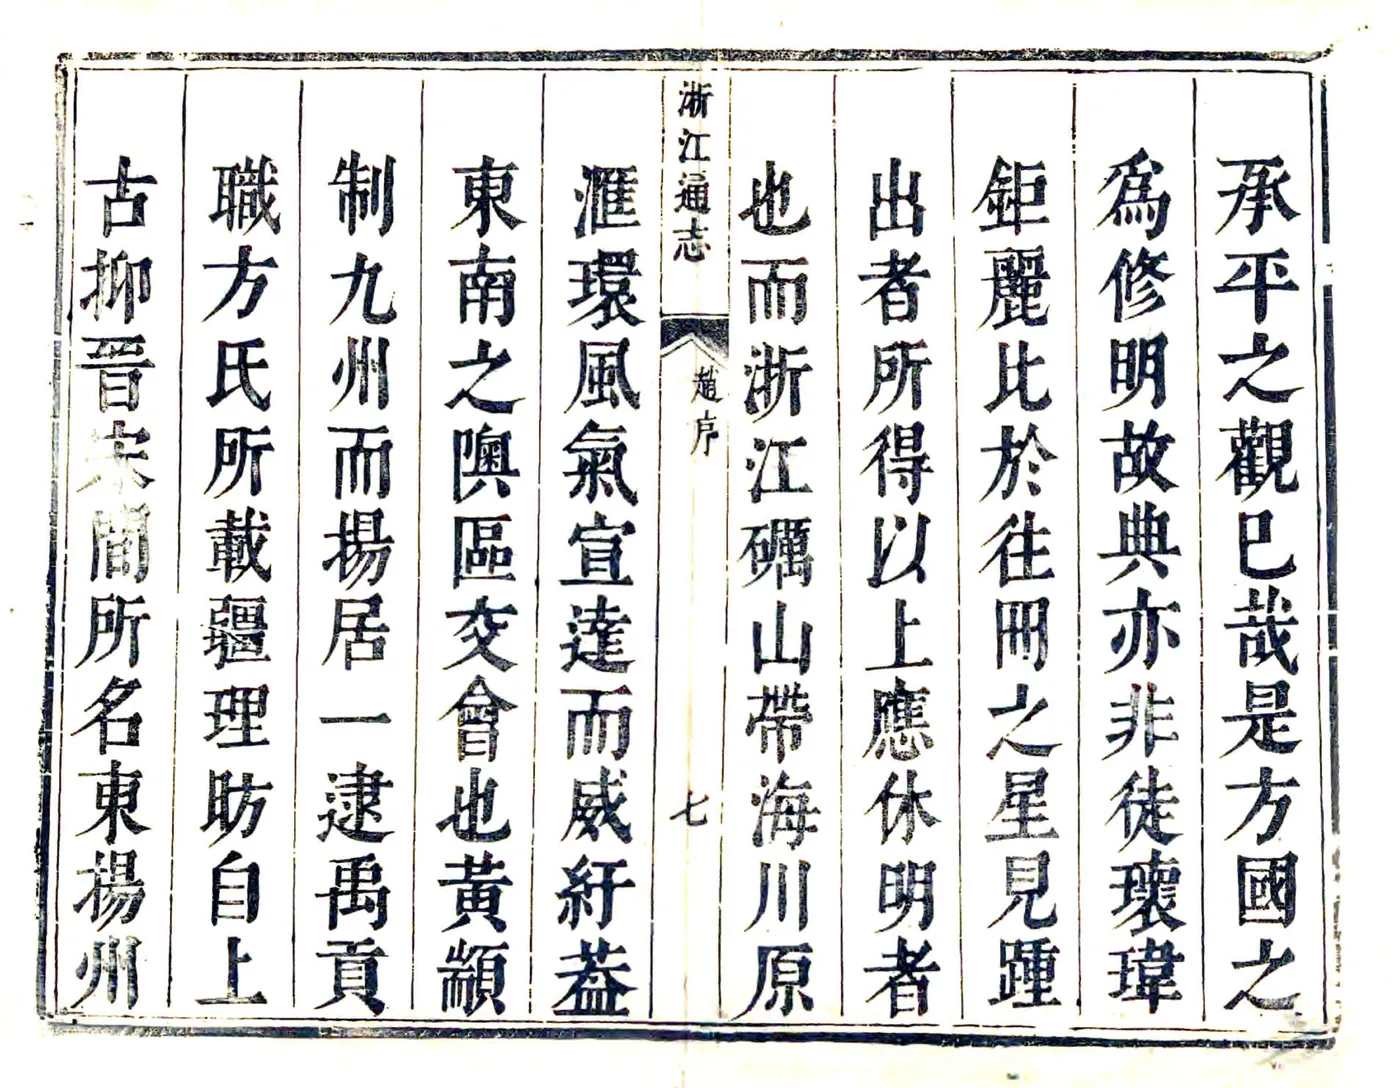 承平之觀已哉是方國之
爲修明故典亦非徒瓌瑋
鉅麗比於徃冊之星見踵
出者所得以上應休明者
也而浙江礪山帶海川原
浙江通志
趙序
七
滙環風氣宣達而威紆葢
東南之隩區交會也黃顓
制九州而揚居一逮禹貢
職方氏所載疆理昉自上
古抑晉宋間所名東揚州